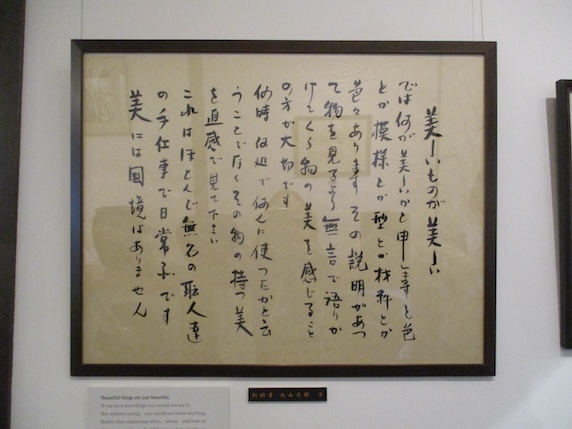 美しいものが美しい
では何が美しいかと申しますと色
とか模様とか型とか材料とか
色々あります その説明があつ
て物を見るより無言で語りか
けてくる物の美を感じること
の方が大切です
何時 何処で何んに使つたかと云
うことでなくその物の持つ美
を直感で見て下さい
これはほとんど無名の職人達
の手仕事で日常品です
美には国境はありません
Beautiful things are just beautiful.
If you have knowledge you would not see it.
But without seeing, you would not know anything.
Rather than explaining when, where, and how